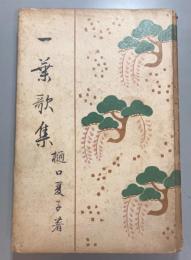 一葉歌集
樋口夏子著